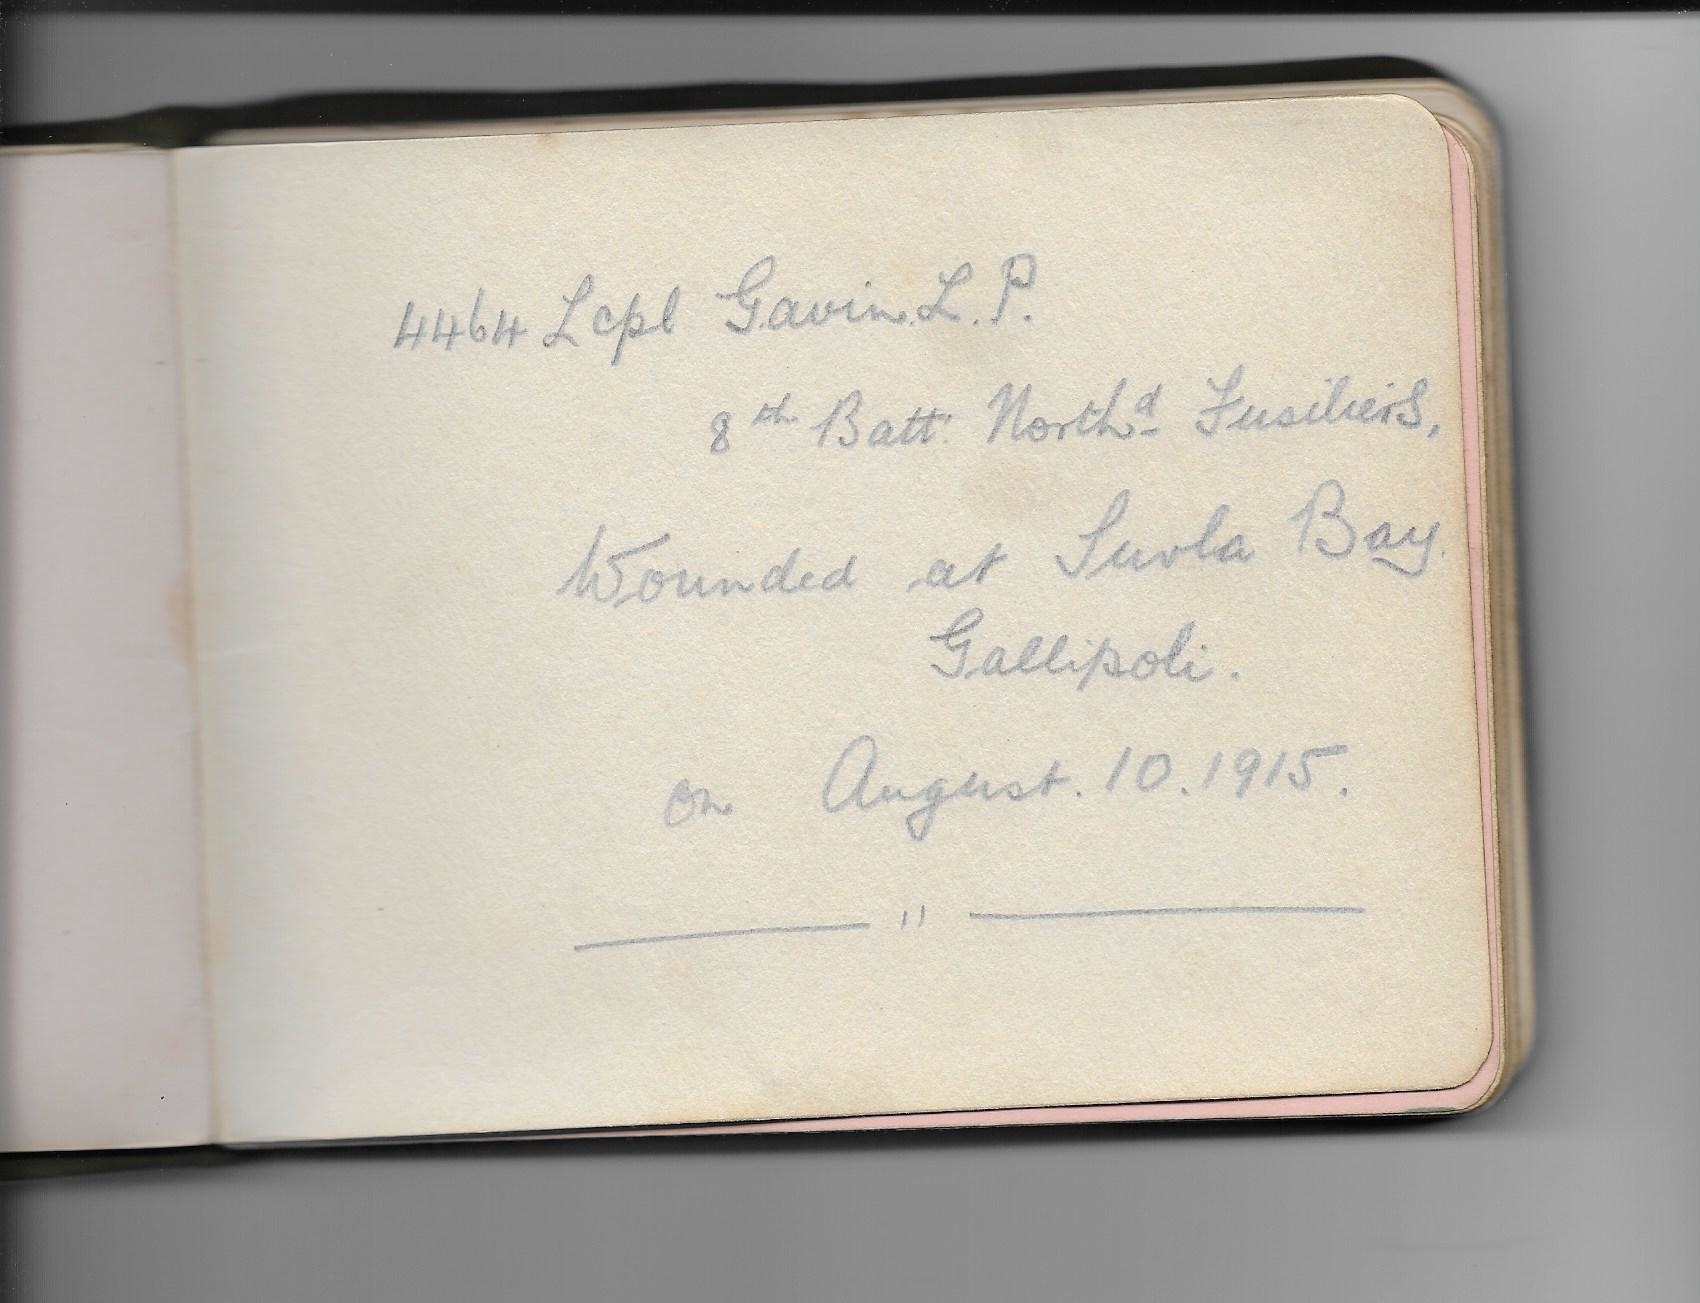 4464 Lcpl Gavin. L. P.
8th Batt. Northd Fusiliers,
Wounded at Suvla Bay.
Gallipoli.
on August. 10. 1915.
"